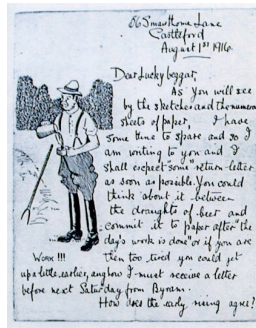 56 Smawthorne Lane
Castleford
August 1st 1916.
Dear Lucky beggar,
As you will see
by the sketches and the numerous
sheets of paper, I have
some time to spare and so I
am writing to you and I
shall expect some "return letter
as soon as possible. You could
think about it between
the draughts of beer and
commit it to paper after the
day's work is done" or if you are
then too tired you could get
up a little earlier, anyhow I must receive a letter
before next Saturday from Byram.
How does the early rising agree?
Work !!!